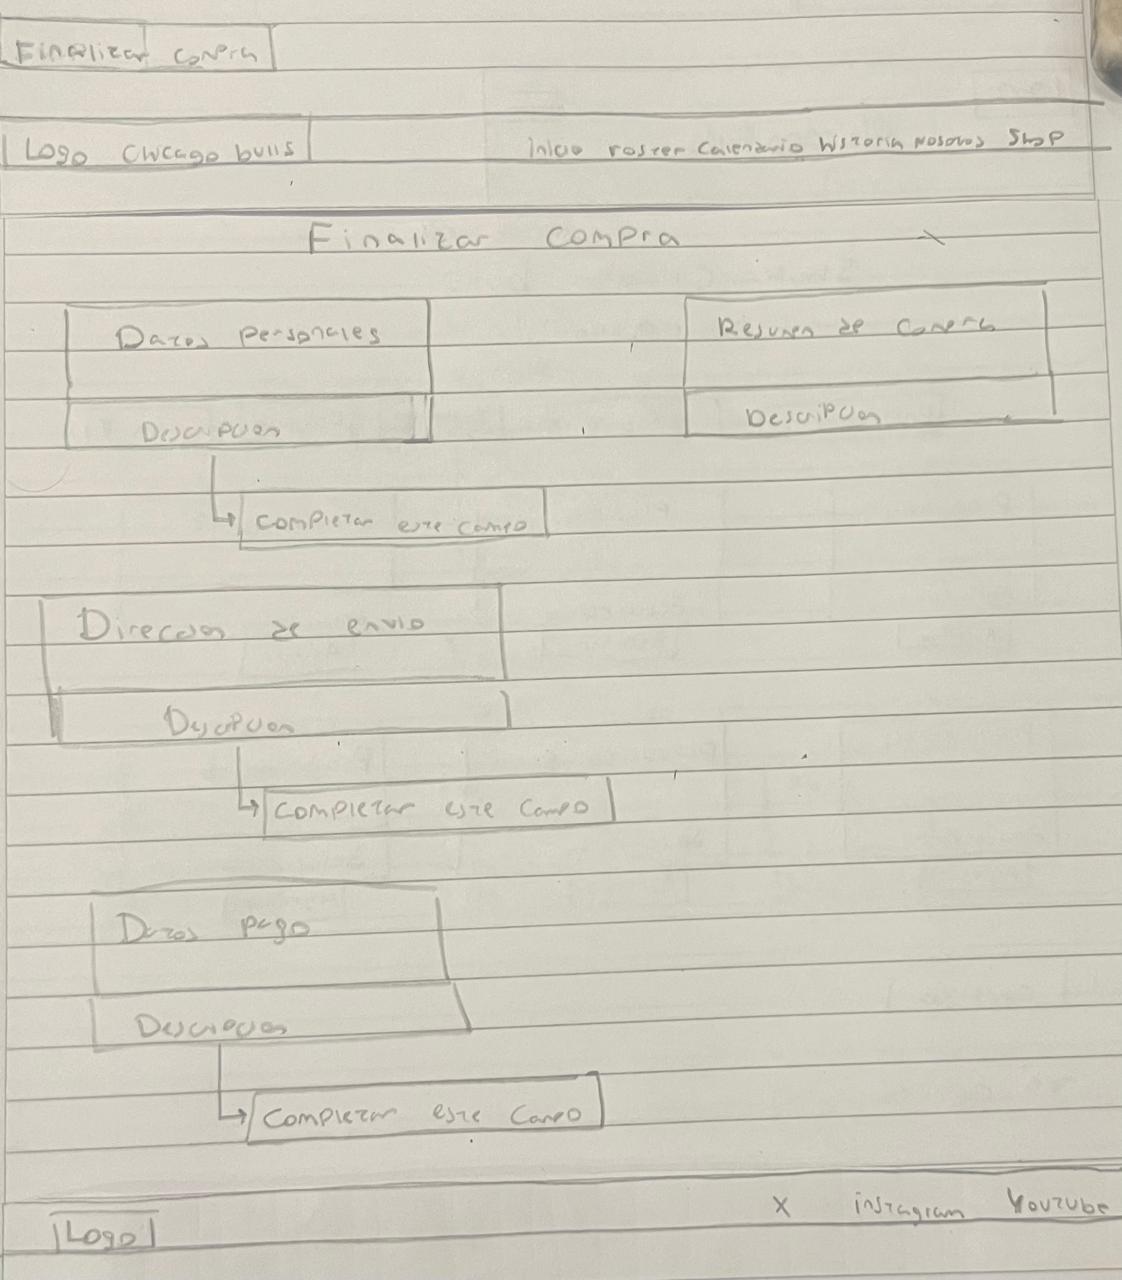 Finalizar compra
Logo Chicago bulls
inicio roster Calendario historia Nosotros Shop
Finalizar compra
Datos personales
Resumen de compra
Descripcion
Descripcion
Completar este campo
Direccion de envio
Descripcion
Completar este campo
Datos pago
Descripcion
Completar este campo
X instagram Youtube
Logo